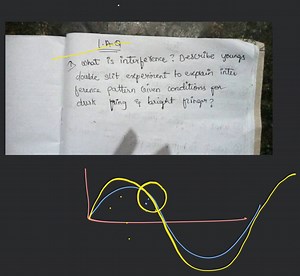 L.A.Q
what is interference? Describe youngs
double slit experiment to explain inter
ference pattern Given conditions for
dusk fring & bright fringes?